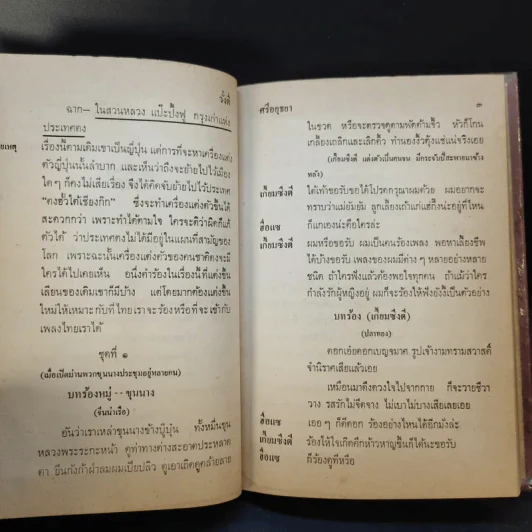 วังตี
ฉาก— ในสวนหลวง แป๊ะปิ้งฟู กรุงเก่าแห่ง
ประเทศตง
ยเหตุ เรื่องนี้ตามเดิมเขาเป็นญี่ปุ่น แต่การที่จะหาเครื่องแต่ง
ตัวญี่ปุ่นนั้นลำบาก และเห็นว่าถึงจะย้ายไปไว้เมือง
ใด ๆ ก็คงไม่เสียเรื่อง จึงได้คิดจับย้ายไปไว้ประเทศ
"ตงฮั้วไต้เซียงก๊ก" ซึ่งจะทำเครื่องแต่งตัวขึ้นได้
สะดวกกว่า เพราะทำได้ตามใจ ใครจะติว่าผิดก็แก้
ตัวได้ ว่าประเทศตงไม่ได้มีอยู่ในแผนที่สามัญของ
โลก เพราะฉะนั้นเครื่องแต่งตัวของคนชาติตงจะมี
ใครได้ไปเคยเห็น อนึ่งคำร้องในเรื่องนี้ที่แต่งขึ้น
เลียนของเดิมเขาก็มีบ้าง แต่โดยมากต้องแต่งขึ้น
ใหม่ให้เหมาะกับที่ไทยเราจะร้องหรือที่จะเข้ากับ
เพลงไทยเราได้
ชุดที่ ๑
(เมื่อเปิดม่านพวกขุนนางประชุมอยู่หลายคน)
บทร้องหมู่ -- ขุนนาง
(จีนนำเรือ)
อันว่าเราเหล่าขุนนางช้างบู๊บุ๋น ทั้งหมื่นขุน
หลวงพระระกะหน้า ดูท่าทางต่างสะอาดประหลาด
ตา ยืนกังก้าผ้าลมผมเปียปลิว ดูเอาเถิดดูคล้ายลาย
ศรีอยุธยา ๓
ในขวด หรือจะตรวจดูตามพัดด้ามจิ้ว หัวก็โกน
เกลี้ยงเถลิกและเลิกคิ้ว ทำนองงิ้วตุ้งแช่แน่จริงเอย
(เกี้ยมซึงตี แต่งตัวเป็นคนจน มีกระจับปี่สะพายมาข้าง
หลัง)
เกี้ยมซึงตี ได้เท้าขอรับขอได้โปรดกรุณาผมด้วย ผมอยากจะ
ทราบว่าแม่ยัมยัม ลูกเลี้ยงเถ้าแก่แฮกึ๊งน่ะอยู่ที่ไหน
ฮ้อแซ ก็แกเองน่ะคือใครล่ะ
เกี้ยมซึงตี ผมหรือขอรับ ผมเป็นคนร้องเพลง พอหาเลี้ยงชีพ
ได้บ้างขอรับ เพลงของผมมีต่าง ๆ หลายอย่างหลาย
ชนิด ถ้าใครฟังแล้วต้องพอใจทุกคน ถ้าแม้ว่าใคร
กำลังรักผู้หญิงอยู่ ผมก็จะร้องให้ฟังยังงี้เป็นตัวอย่าง
บทร้อง (เกี้ยมซึงตี)
(ปลาทอง)
ดอกเอ๋ยดอกเบญจมาศ รูปเจ้างามทรามสวาสดิ์
จำนิราศเสียแล้วเอย
เหมือนมาดึงดวงใจไปจากกาย ก็จะวายชีวา
วาง รสรักไม่จืดจาง ไม่เบาไม่บางเสียเลยเอย
ฮ้อแซ เออ ๆ ก็ดีดอก ร้องอย่างไหนได้อีกมั่งล่ะ
เกี้ยมซึงตี ร้องให้ใจเกิดคึกห้าวหาญขึ้นก็ได้น่ะขอรับ
ฮ้อแซ ก็ร้องดูทีหรือ